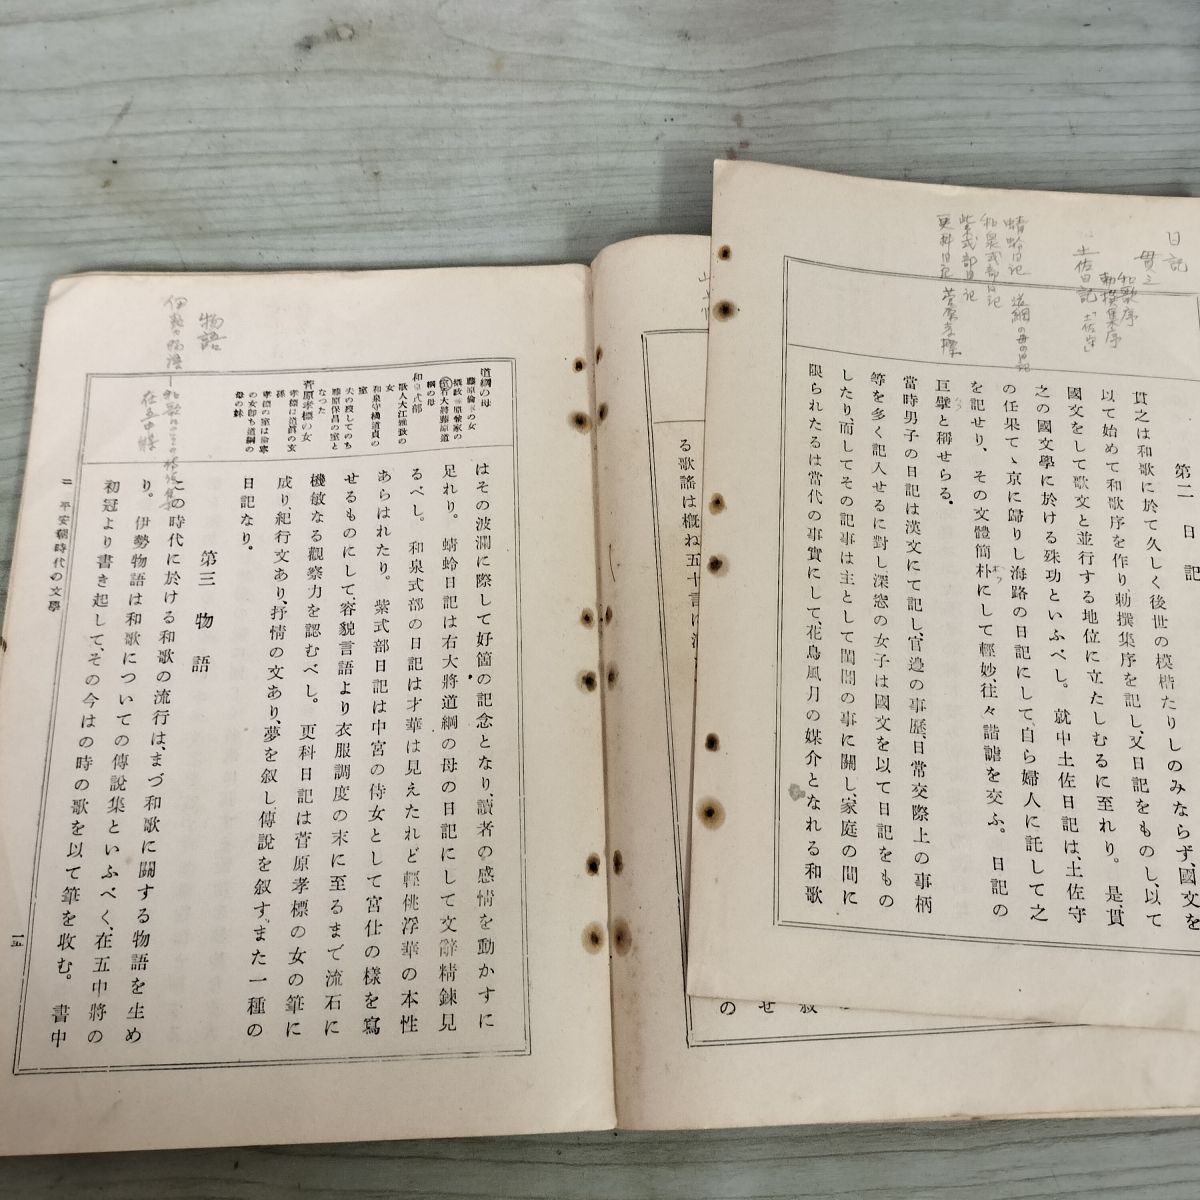 日記
貫之
和歌序
勅撰集序
土佐日記「土佐守」
蜻蛉日記 道綱の母の日記
和泉式部日記
紫式部日記
更科日記 菅原孝標
第二 日記
貫之は和歌に於て久しく後世の模楷たりしのみならず、國文を
以て始めて和歌序を作り勅撰集序を記し、又日記をものし、以て
國文をして歌文と並行する地位に立たしむるに至れり。 是、貫
之の國文學に於ける殊功といふべし。 就中土佐日記は、土佐守
の任果てゝ京に歸りし海路の日記にして、自ら婦人に託して之
を記せり、その文體簡朴にして輕妙、往々諧謔を交ふ。 日記の
巨擘と稱せらる。
當時男子の日記は漢文にて記し、官邊の事歷、日常交際上の事柄
等を多く記入せるに對し深窓の女子は國文を以て日記をもの
したり而してその記事は主として閨閤の事に關し、家庭の間に
限られたるは當代の事實にして、花鳥風月の媒介となれる和歌
る歌謠は概ね五十言に
せ
の
道綱の母
藤原倫寧の女
攝政藤原兼家の
室右大將藤原道
綱の母
和泉式部
歌人大江雅致の
女
和泉守橘道貞の
室
夫の歿してのち
藤原保昌の室と
なつた
菅原孝標の女
孝標は道眞の玄
孫
孝標の室は倫寧
の女卽ち道綱の
母の妹
はその波瀾に際して好箇の記念となり、讀者の感情を動かすに
足れり。 蜻蛉日記は右大將道綱の母の日記にして文辭精鍊見
るべし。 和泉式部の日記は才華は見えたれど輕佻浮華の本性
あらはれたり。 紫式部日記は中宮の侍女として宮仕の樣を寫
せるものにして、容貌言語より衣服調度の末に至るまで流石に
機敏なる觀察力を認むべし。 更科日記は菅原孝標の女の筆に
成り、紀行文あり、抒情の文あり、夢を叙し、傳說を叙す。また一種の
日記なり。
第三 物語
この時代に於ける和歌の流行は、まづ和歌に關する物語を生め
り。伊勢物語は和歌についての傳說集といふべく、在五中將の
初冠より書き起して、その今はの時の歌を以て筆を收む。 書中
二 平安朝時代の文學
一五
物語
伊勢物語
在五中將